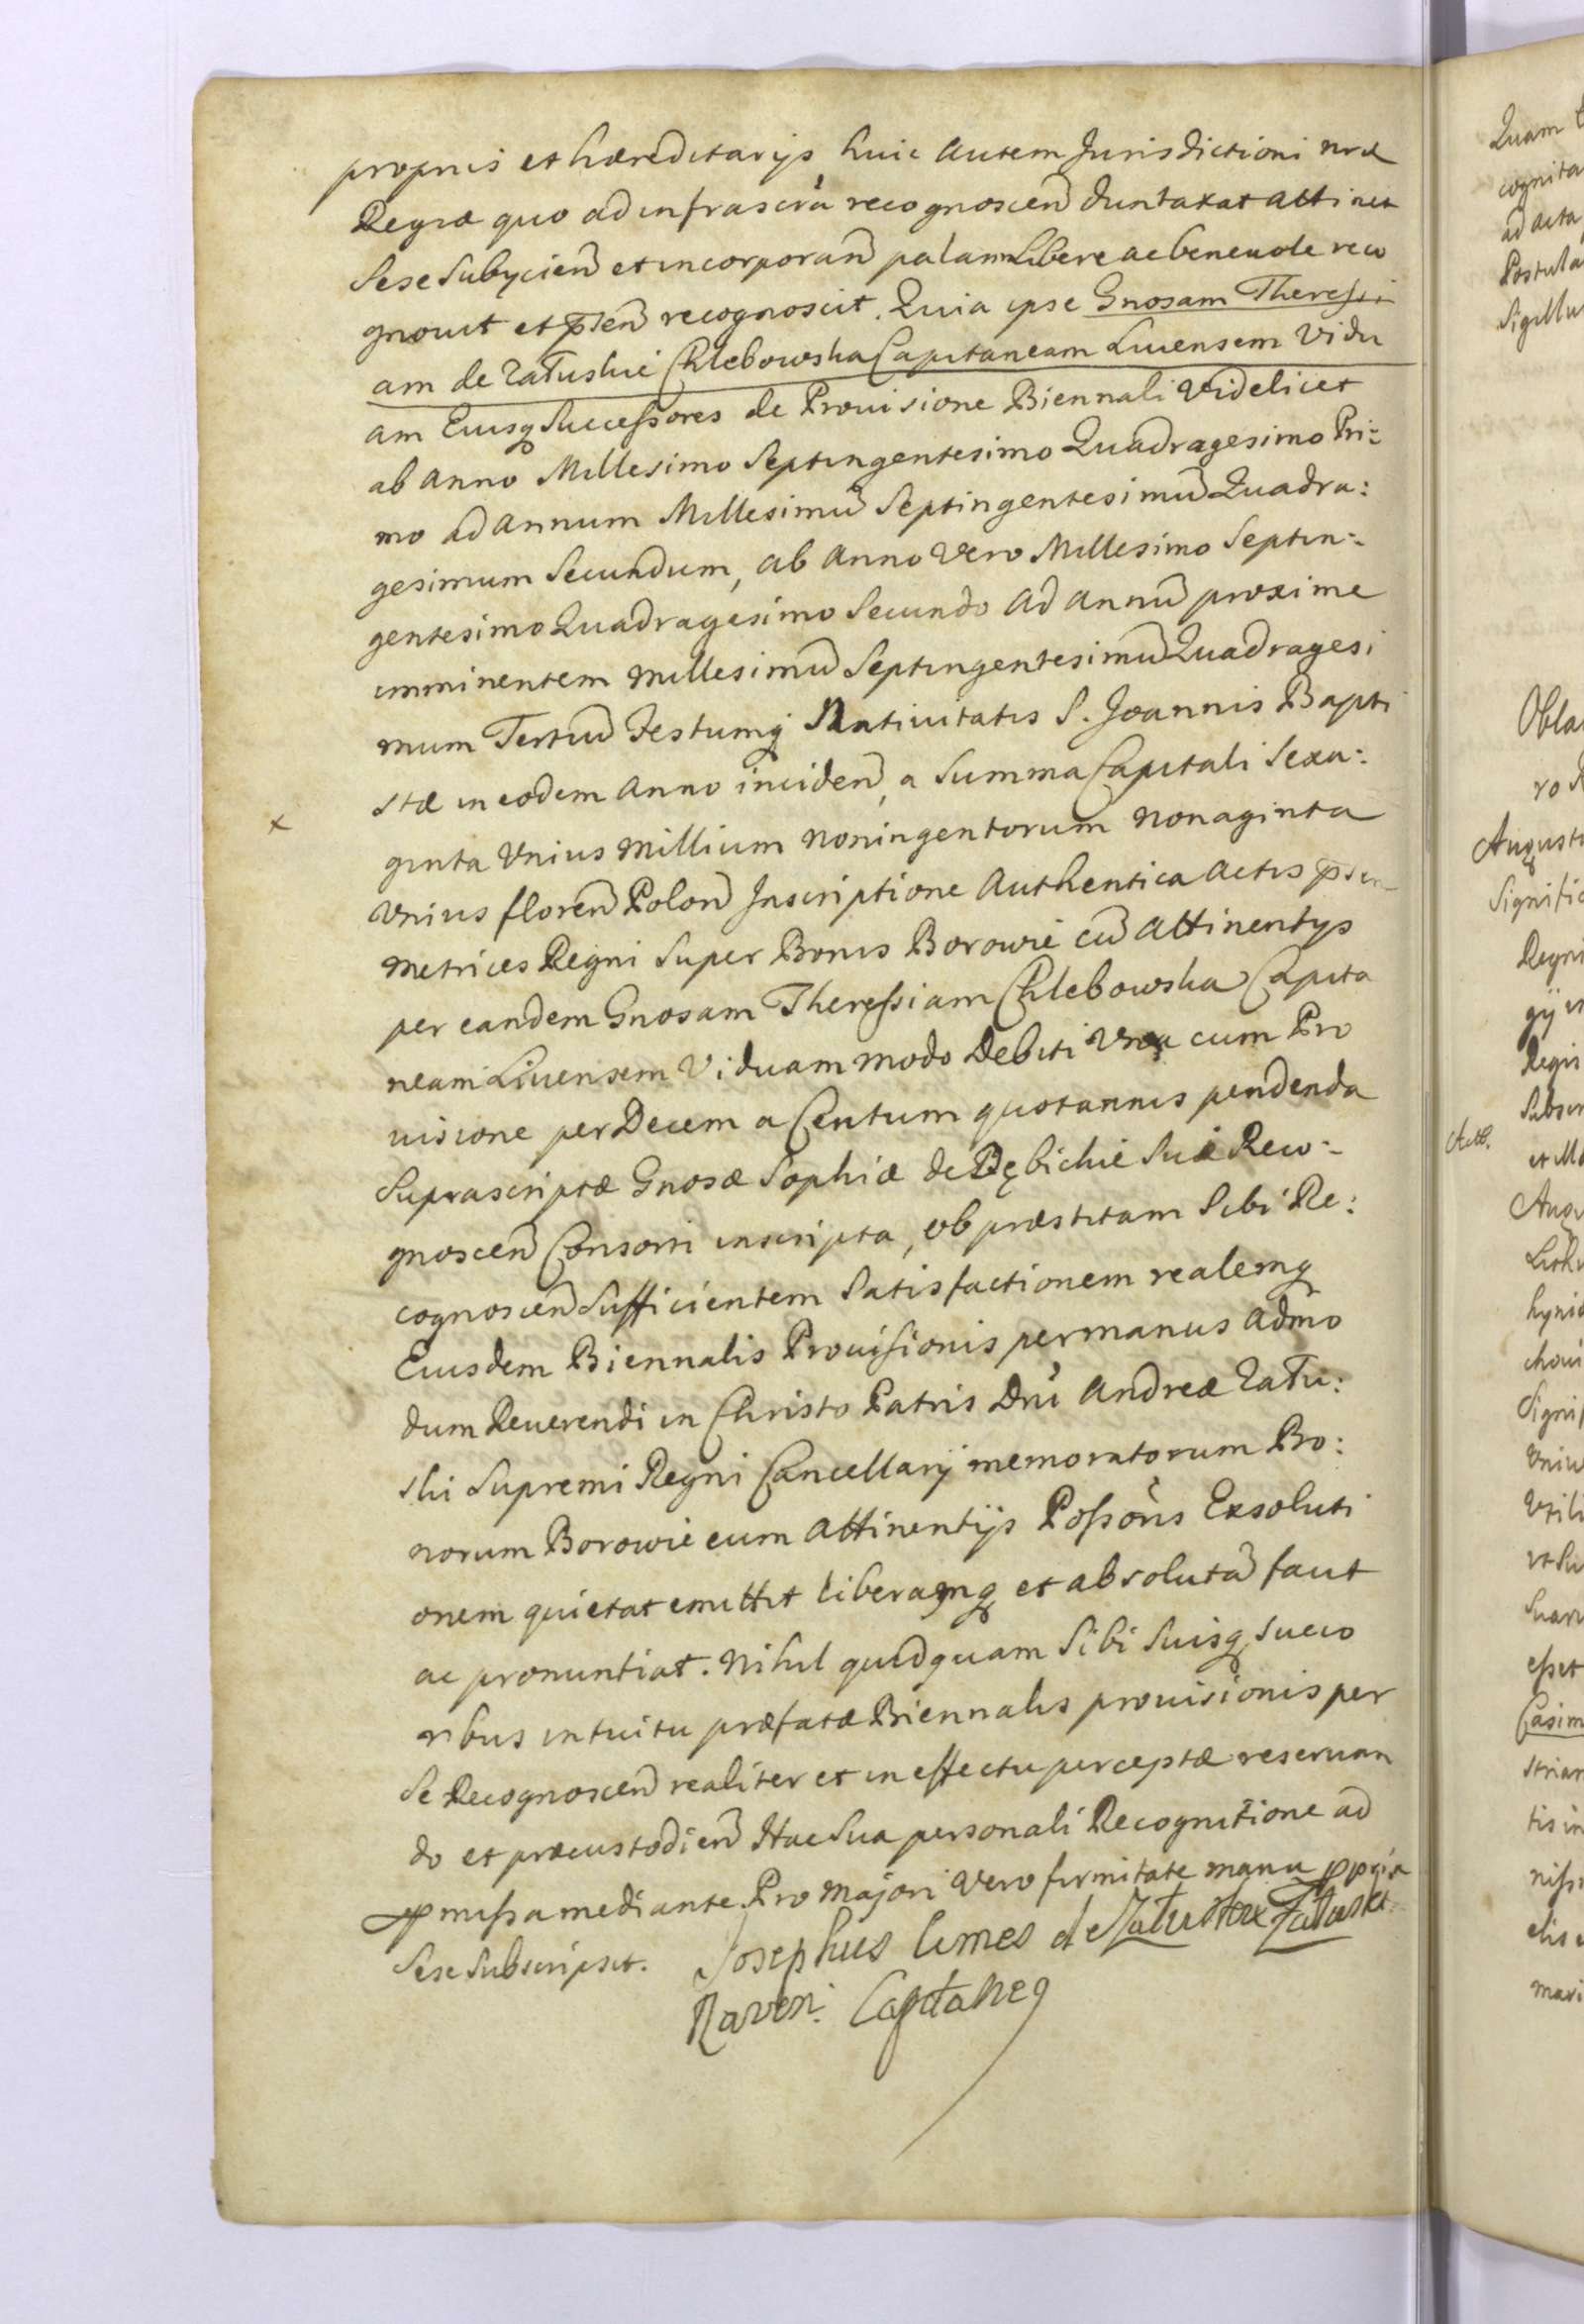 proprijs et hæreditarijs huic autem Jurisdictioni nræ
Regiæ quo ad infrascrā recognoscen̄ duntaxat attinet
Sese Subijcien̄ et incorporan̄ palam Libere ac beneuole reco
gnouit et p̄sen̄ recognoscit. Quia ipse Gnosam Theressi
am de Załuskie Chlebowska Capitaneam Liuensem Vidu
am Eiusq Successores de Prouisione Biennali Videlicet
ab Anno Millesimo Septingentesimo Quadragesimo Pri:
mo ad Annum Millesimū Septingentesimū Quadra:
gesimum Secundum, ab Anno Vero Millesimo Septin:
gentesimo Quadragesimo Secundo ad Annū proxime
imminentem Millesimū Septingentesimū Quadragesi
mum Tertiū Festumq Natiuitatis S. Joannis Bapti
stæ in eodem Anno inciden̄, a Summa Capitali Sexa:
x
ginta Vnius Millium Noningentorum Nonaginta
Vnius floren̄ Polon̄ Inscriptione Authentica Actis p̄sen
Metrices Regni Super Bonis Borowie cū Attinentijs
per eandem Gnosam Theressiam Chlebowska Capita
neam Liuensem Viduam modo Debiti Vna cum Pro
uisione per Decem a Centum quotannis pendenda
Suprascriptæ Gnosæ Sophiæ de Dębickie Suæ Reco:
gnoscen̄ Consorti inscripta, ob præstitam Sibi Re:
cognoscen̄ Sufficientem Satisfactionem realemq
Eiusdem Biennalis Prouisionis per manus Admo
dum Reuerendi in Christo Patris Dni Andreæ Zału:
ski Supremi Regni Cancellarij memoratorum Bo:
norum Borowie cum Attinentijs Possoris Exsoluti
onem quietat emittit liberamq et absolutā facit
ac pronuntiat. Nihil quidquam Sibi Suisq Succo
ribus intuitu præfatæ Biennalis prouisionis per
Se Recognoscen̄ realiter et in effectu perceptæ reseruan
do et præcustodien̄ Hac Sua personali Recognitione ad
p̄missa mediante. Pro Majori Vero firmitate manu ppria
Sese Subscripsit. Josephus Comes de Załuskie Załuski
Raven: Capitaneq